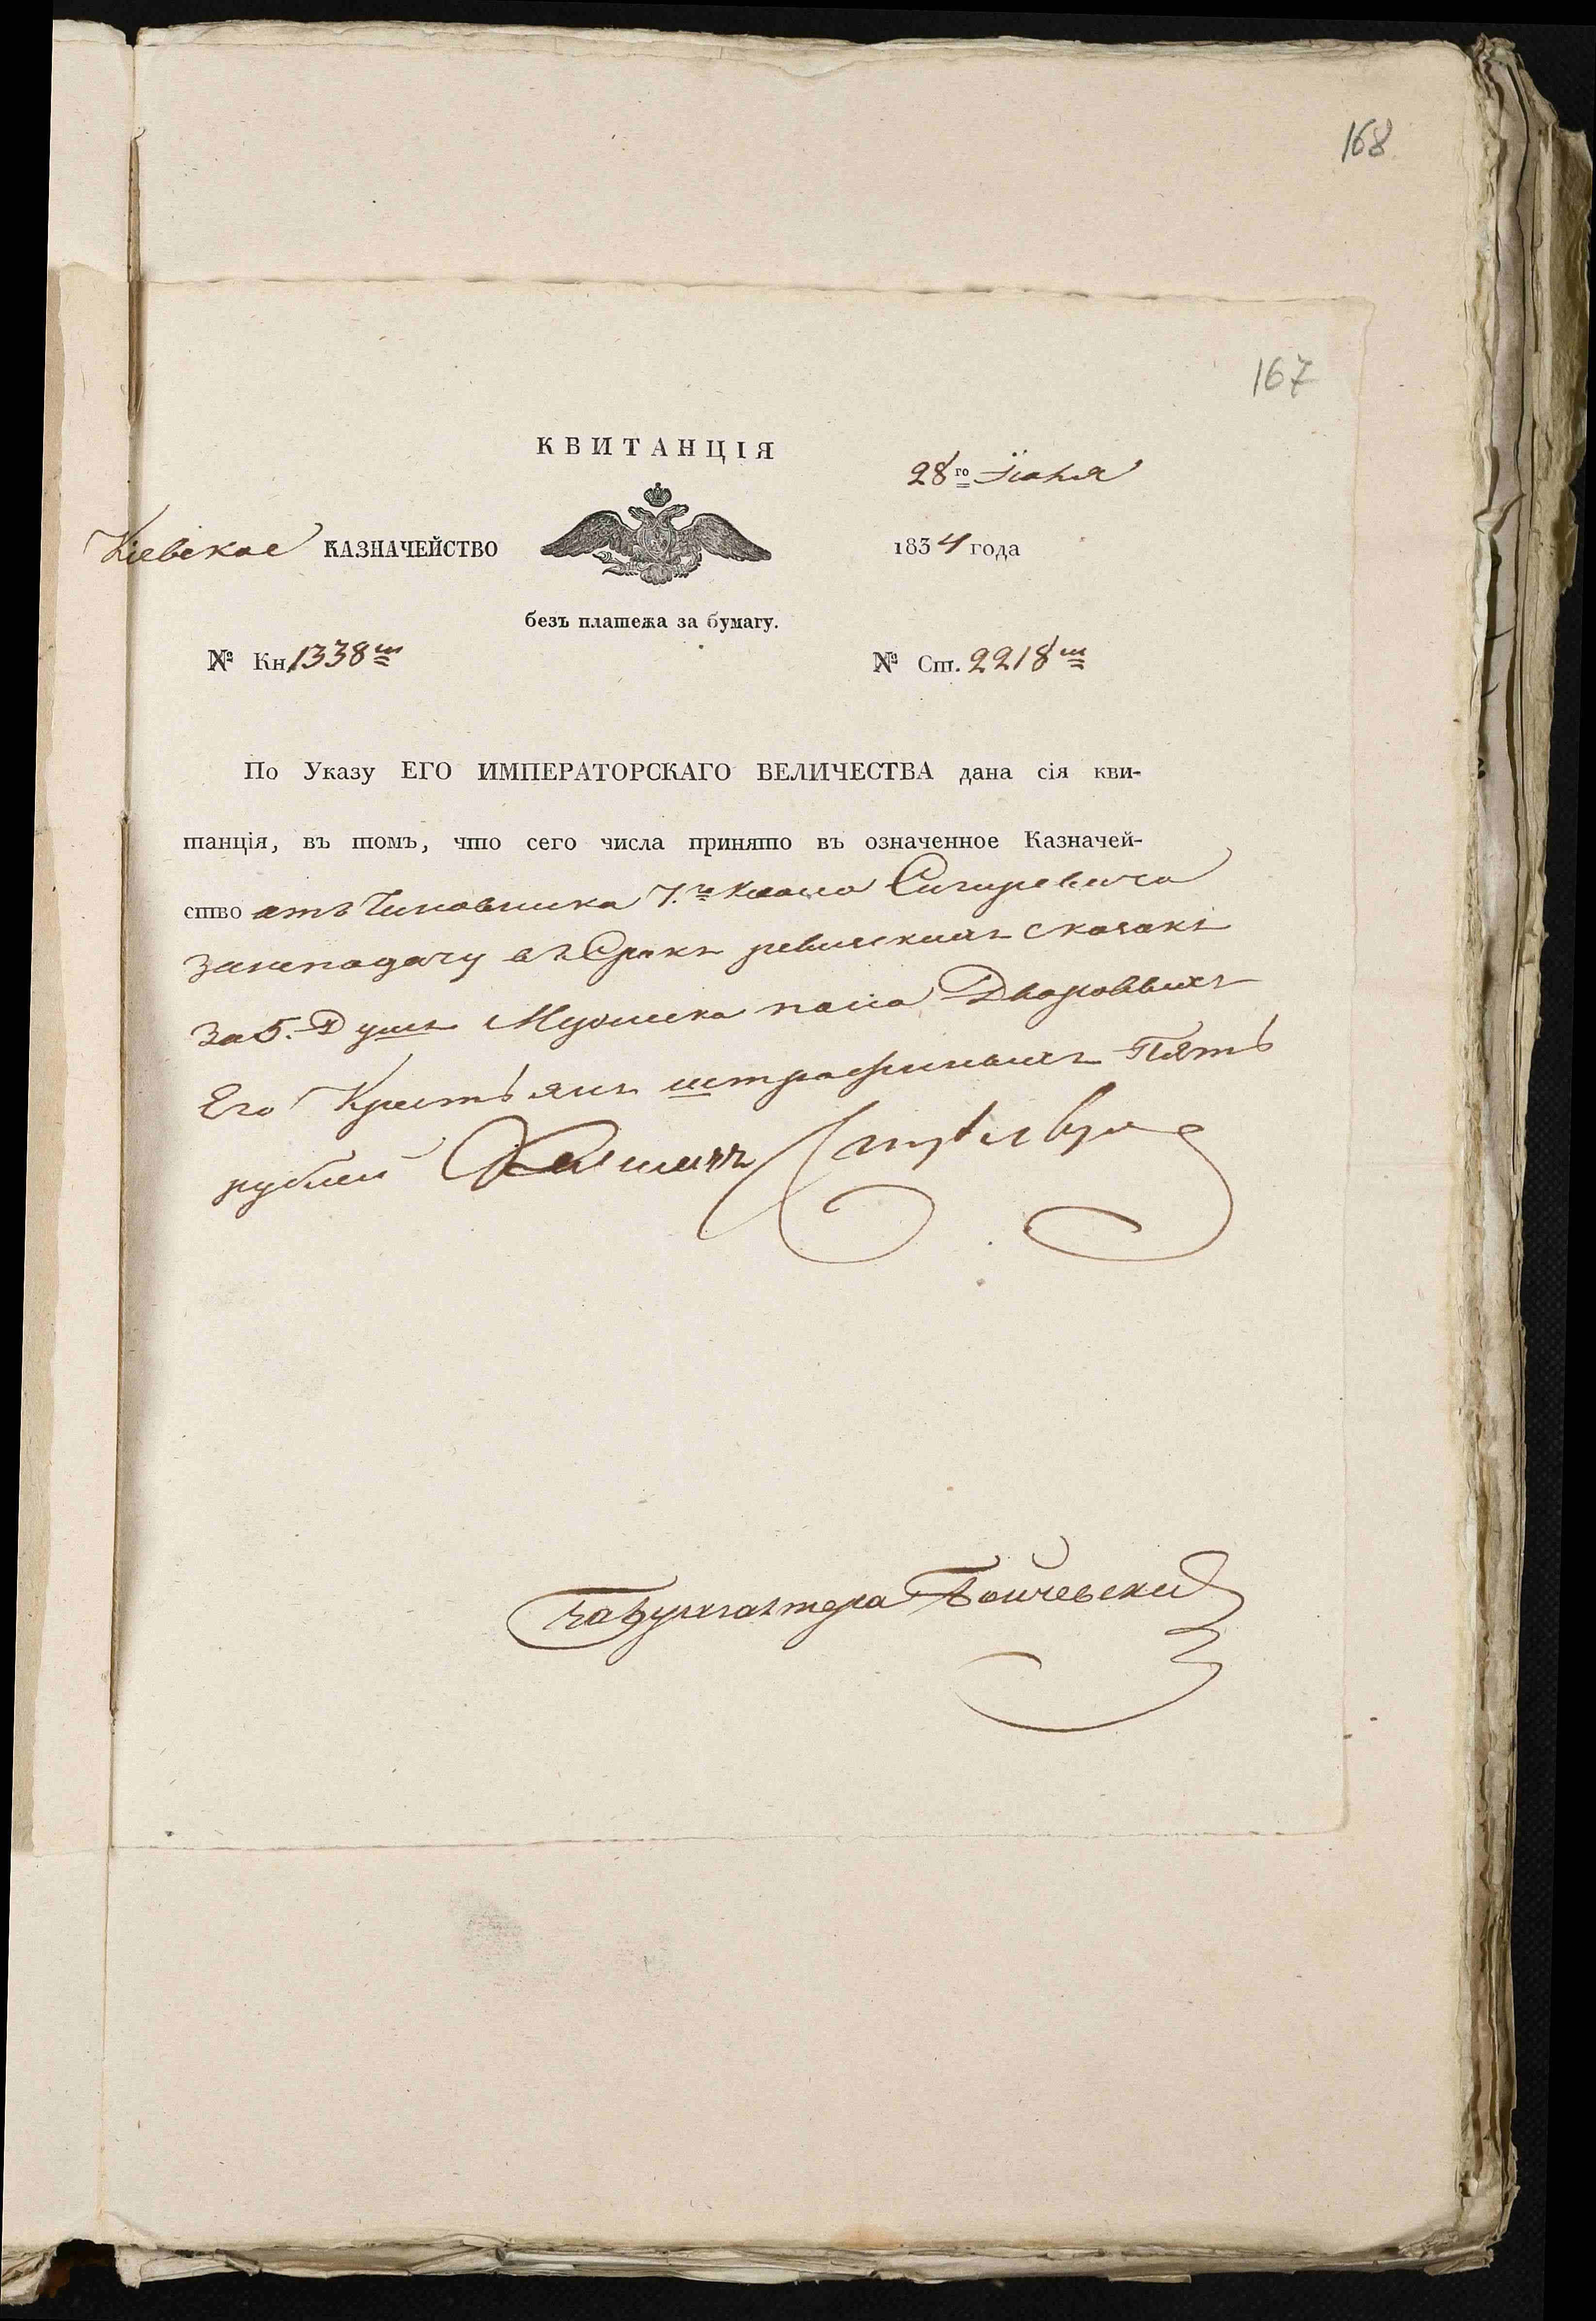 168
167
КВИТАНЦІЯ
28го Іюня
Кіевское КАЗНАЧЕЙСТВО
1834 года
безъ платежа за бумагу.
№ Кн. 1338ш
№ Ст. 2218ш
По Указу ЕГО ИМПЕРАТОРСКАГО ВЕЛИЧЕСТВА дана сія кви-
танція, въ томъ, что сего числа принято въ означенное Казначей-
ство отъ Чиновника 7.го Класа
за неподачу въ Срокъ ревизскихъ сказакъ
за 5. Душъ Мужеска пола Дворовыхъ
Его Крестьянъ штрафныхъ Пять
рублей
За Бухгалтера